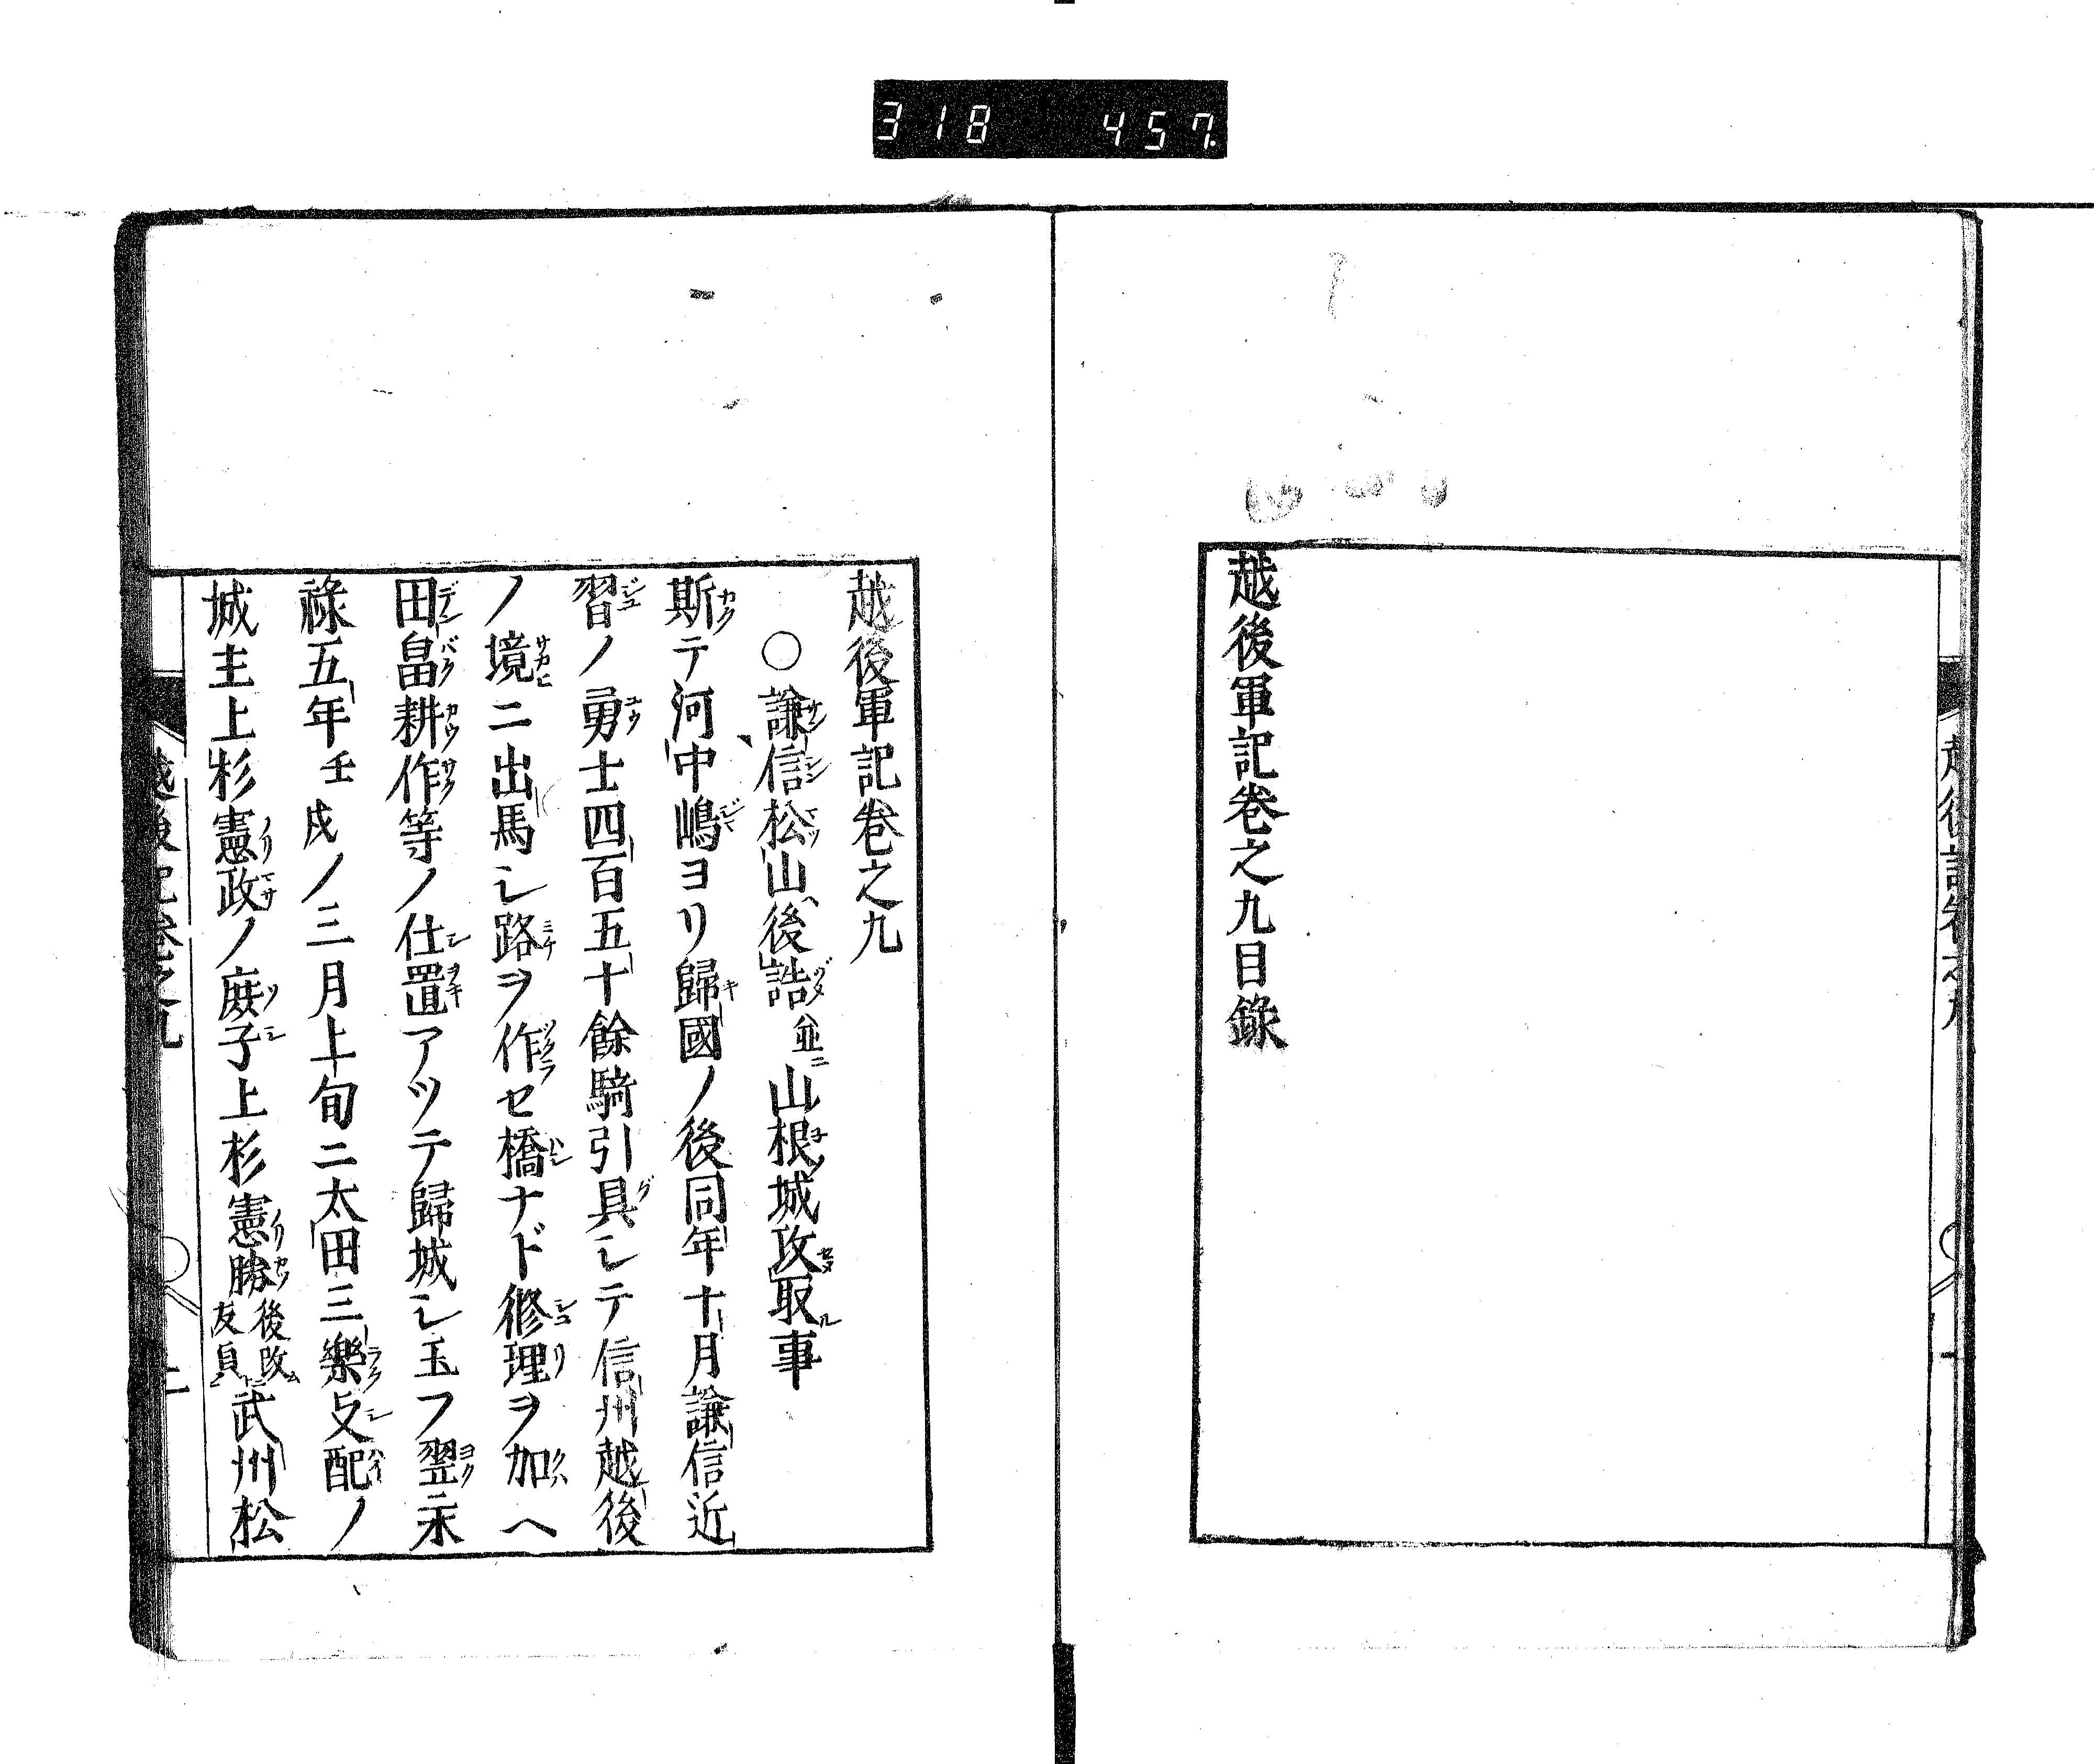 318 457
越後軍記卷之九目錄
越後軍記卷之九
○謙信松山後詰並ニ山根城攻取事
斯テ河中嶋ヨリ歸國ノ後同年十月謙信近
習ノ勇士四百五十餘騎引具シテ信州越後
ノ境ニ出馬シ路ヲ作セ橋ナド修理ヲ加ヘ
田畠耕作等ノ仕置アツテ歸城シ玉フ翌永
祿五年壬戌ノ三月上旬ニ太田三樂支配ノ
城主上杉憲政ノ庻子上杉憲勝後改友貞武州松
越後記卷之九